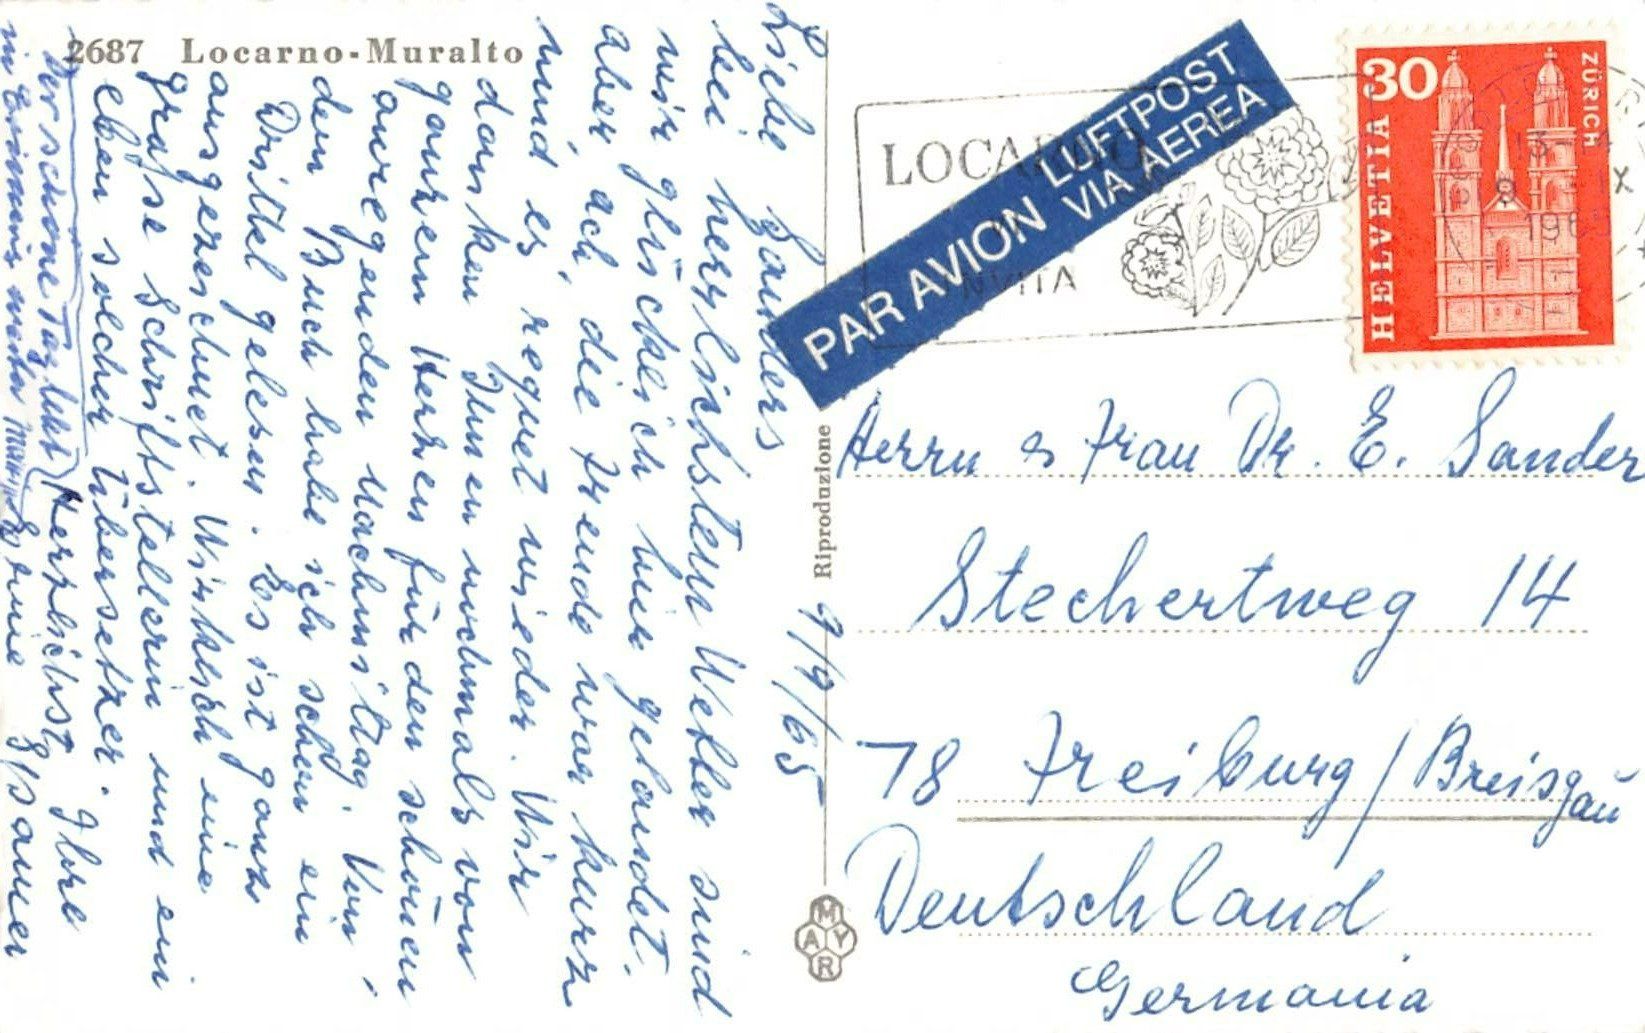 2687 Locarno-Muralto
9/9/65
Liebe Sanders
bei herrlichstem Wetter sind
wir glücklich hier gelandet.
aber, ach die Freude war kurz
und es regnet wieder. Wir
danken Ihnen nochmals von
ganzem Herzen für den schönen
anregenden Nachmittag. Von
dem Buch habe ich schon ein
Drittel gelesen. Es ist ganz
ausgezeichnet. Wirklich eine
große Schriftstellerin und ein
eben solcher Übersetzer. Ihre
Der schöne Tag lebt Herzlichst,
in Erinnerung weiter
Riproduzione
MAYR
PAR AVION
LUFTPOST
VIA AEREA
LOCARNO
INVITA
HELVETIA
30
ZÜRICH
1965
Herrn & Frau Dr. E. Sander
Stechertweg 14
78 Freiburg / Breisgau
Deutschland
Germania